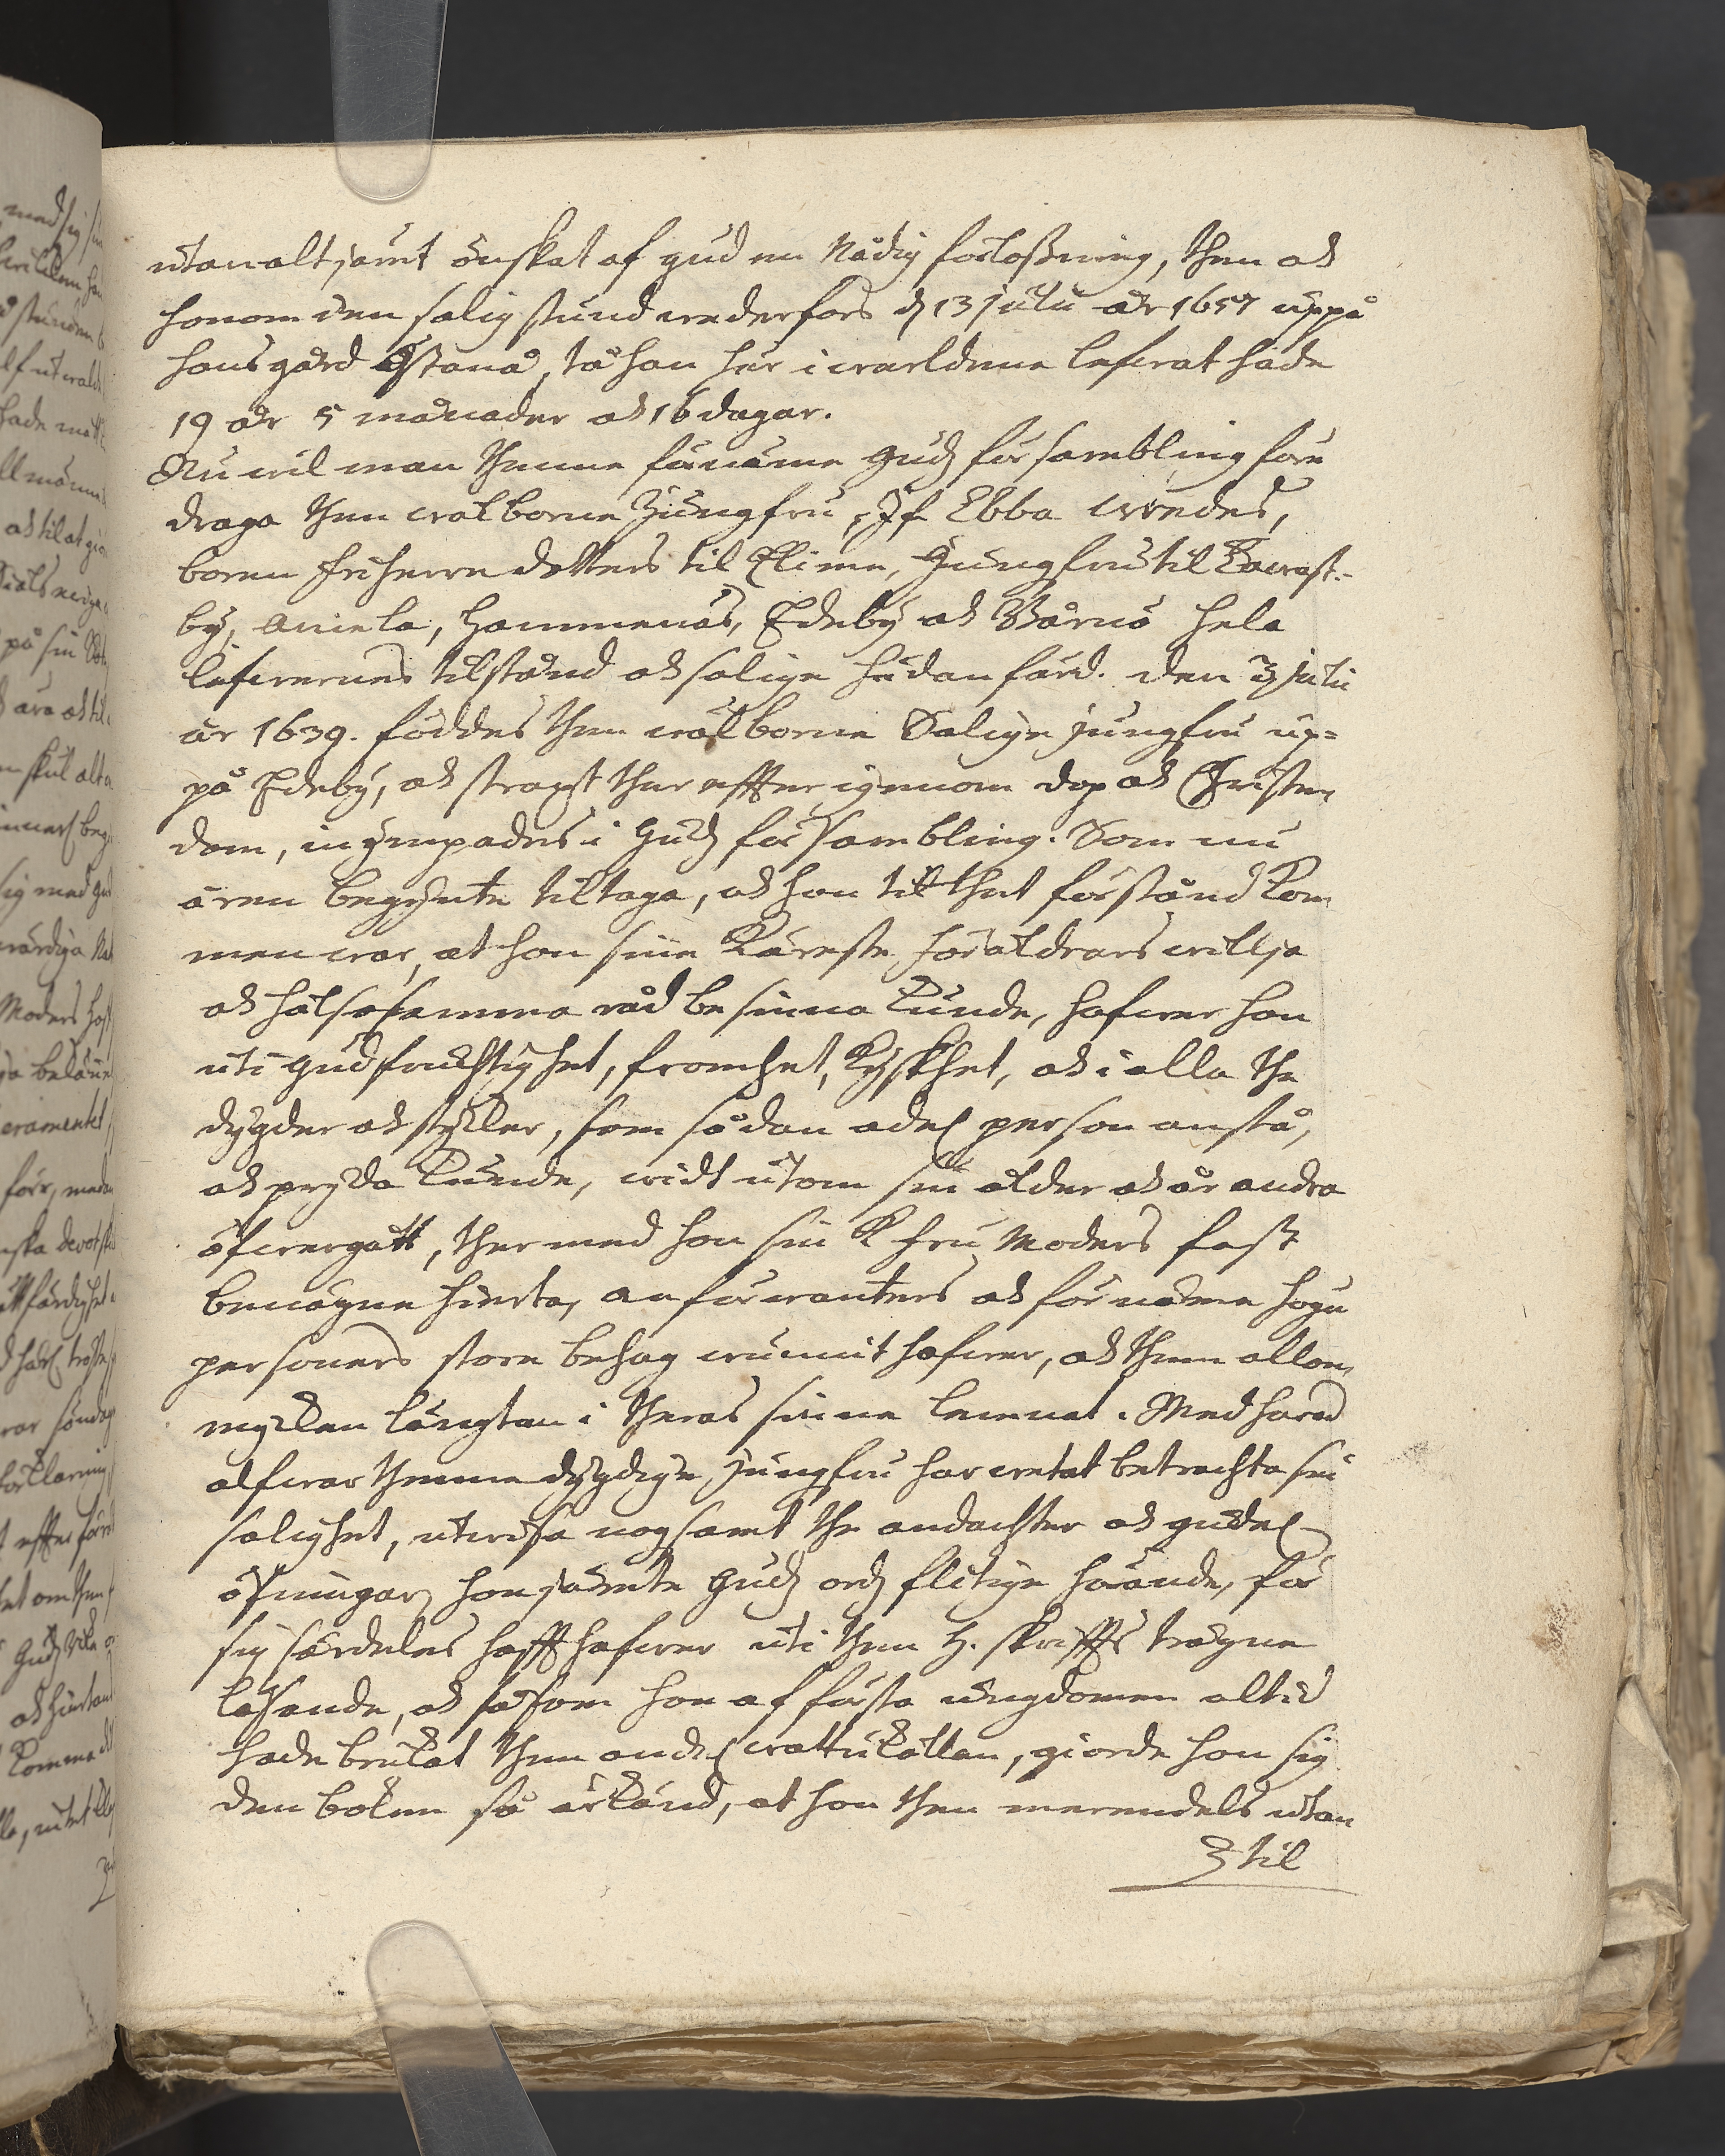 utan altjämt önskat af gud en Nådig förloßning, then ok
honom den salig stund wederfors d 13 julii åhr 1657 uppå
hans gård Östanå, tå han här i werldenne lefwat hade
19 åhr 5 månader ok 16 dagar.
Nu wil man thenne förnäme Gudz försambling före
draga then wälborne Jungfru, Jf. Ebba Wredes,
boren friherre dotters til Elimä, Jungfru til Kawast-
by, Aniela, Hammenäs, Edeby ok Wärnö hela
lefwernes tilstånd ok salige hädanfärd. Den 3 julii
år 1639. föddes then wälborne Salige jungfru up-
på Edeby, ok straxt ther effter igenom dop ok Christen
dom, inympades i Gudz försambling. Som nu
åren begynte tiltaga, ok hon til thet förstånd kom
men war, at hon sine käreste föräldrars willja
ok hälsosamma råd besinna kunde, hafwer hon
uti gudfruchtighet, fromhet, kyskhet, ok i alla the
dygder ok stycker, som sådan adel person anstå,
ok pryda kunde, widt utom sin ålder ok år andra
öfwergått, ther med hon sin K. fru Moders fast
benägne hierta, anförwanters ok förnäme höge
personers store behag wunnit hafwer, ok them allom
mycken längtan i theras sinne lemnat. Med hwad
alfwar thenne dygdige jungfru har wetat betrachta sin
salighet, utwisa nogsamt the andachter ok gudel
öfningar, hon jämte Gudz ordz flitige hörande, för
sig särdeles hafft hafwer uti then H. skriffts trägne
läsande, ok såsom hon af första ungdomen altid
hade brukat then andel wattukällan, giorde hon sig
den boken så ärkänd, at hon then merendels utan
til